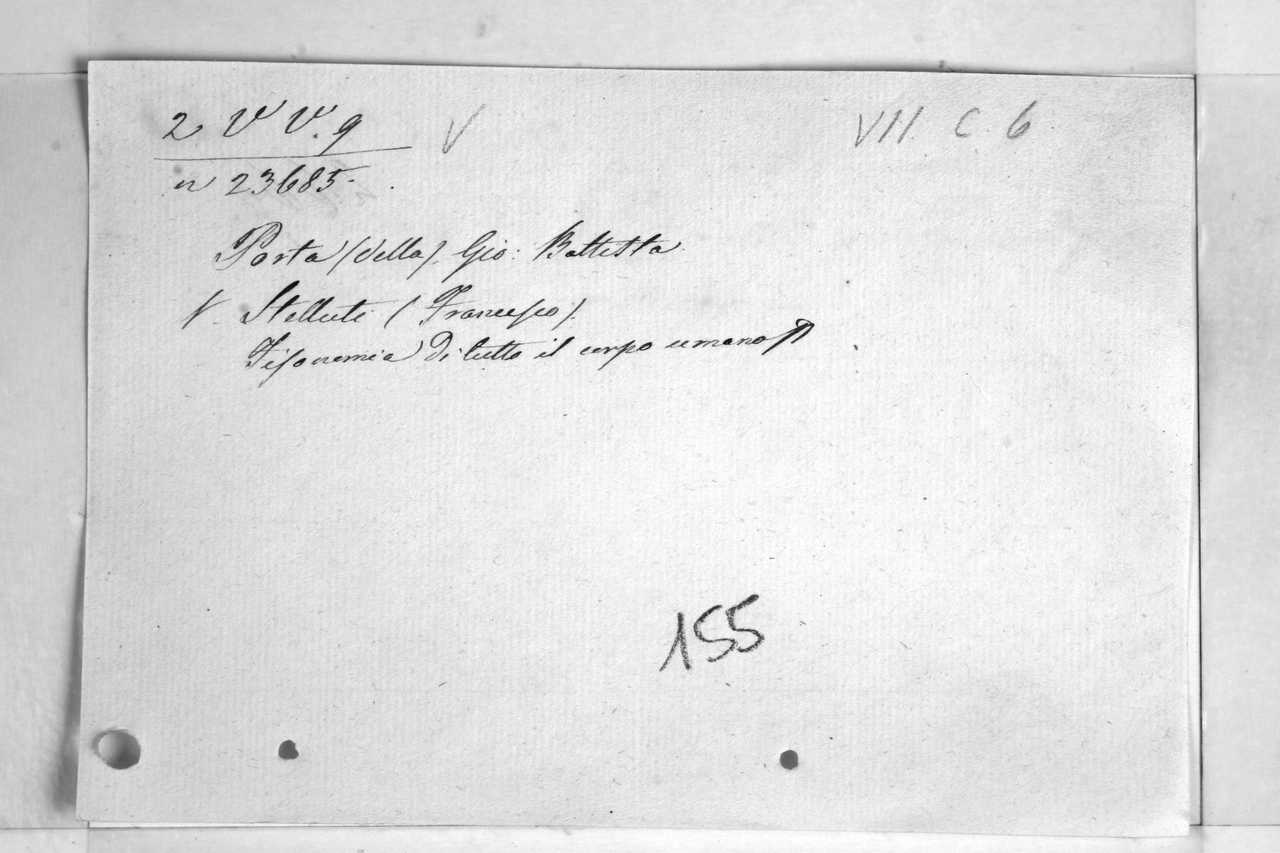 2 V V. 9 V VII. C. 6
n 23685.
Porta (della) Gio: Battista
V. Stelluti (Francesco).
Fisonomia di tutto il corpo umano
155